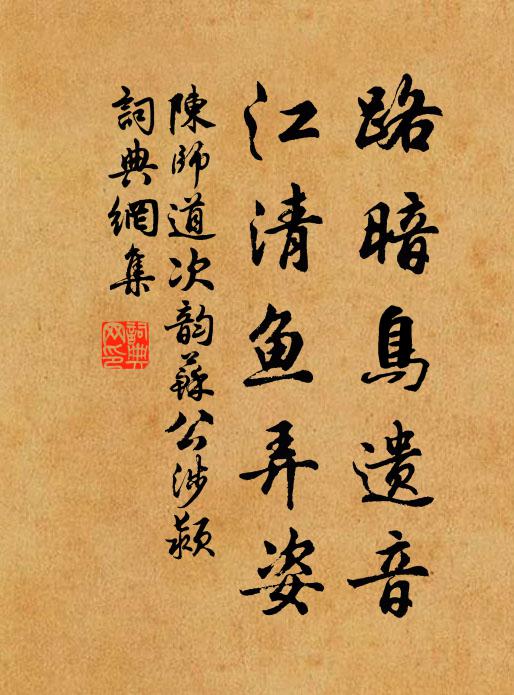 路暗鳥遺音
江清魚弄姿
陳師道次韵蘇公涉潁
詞典網集
詞典
网印